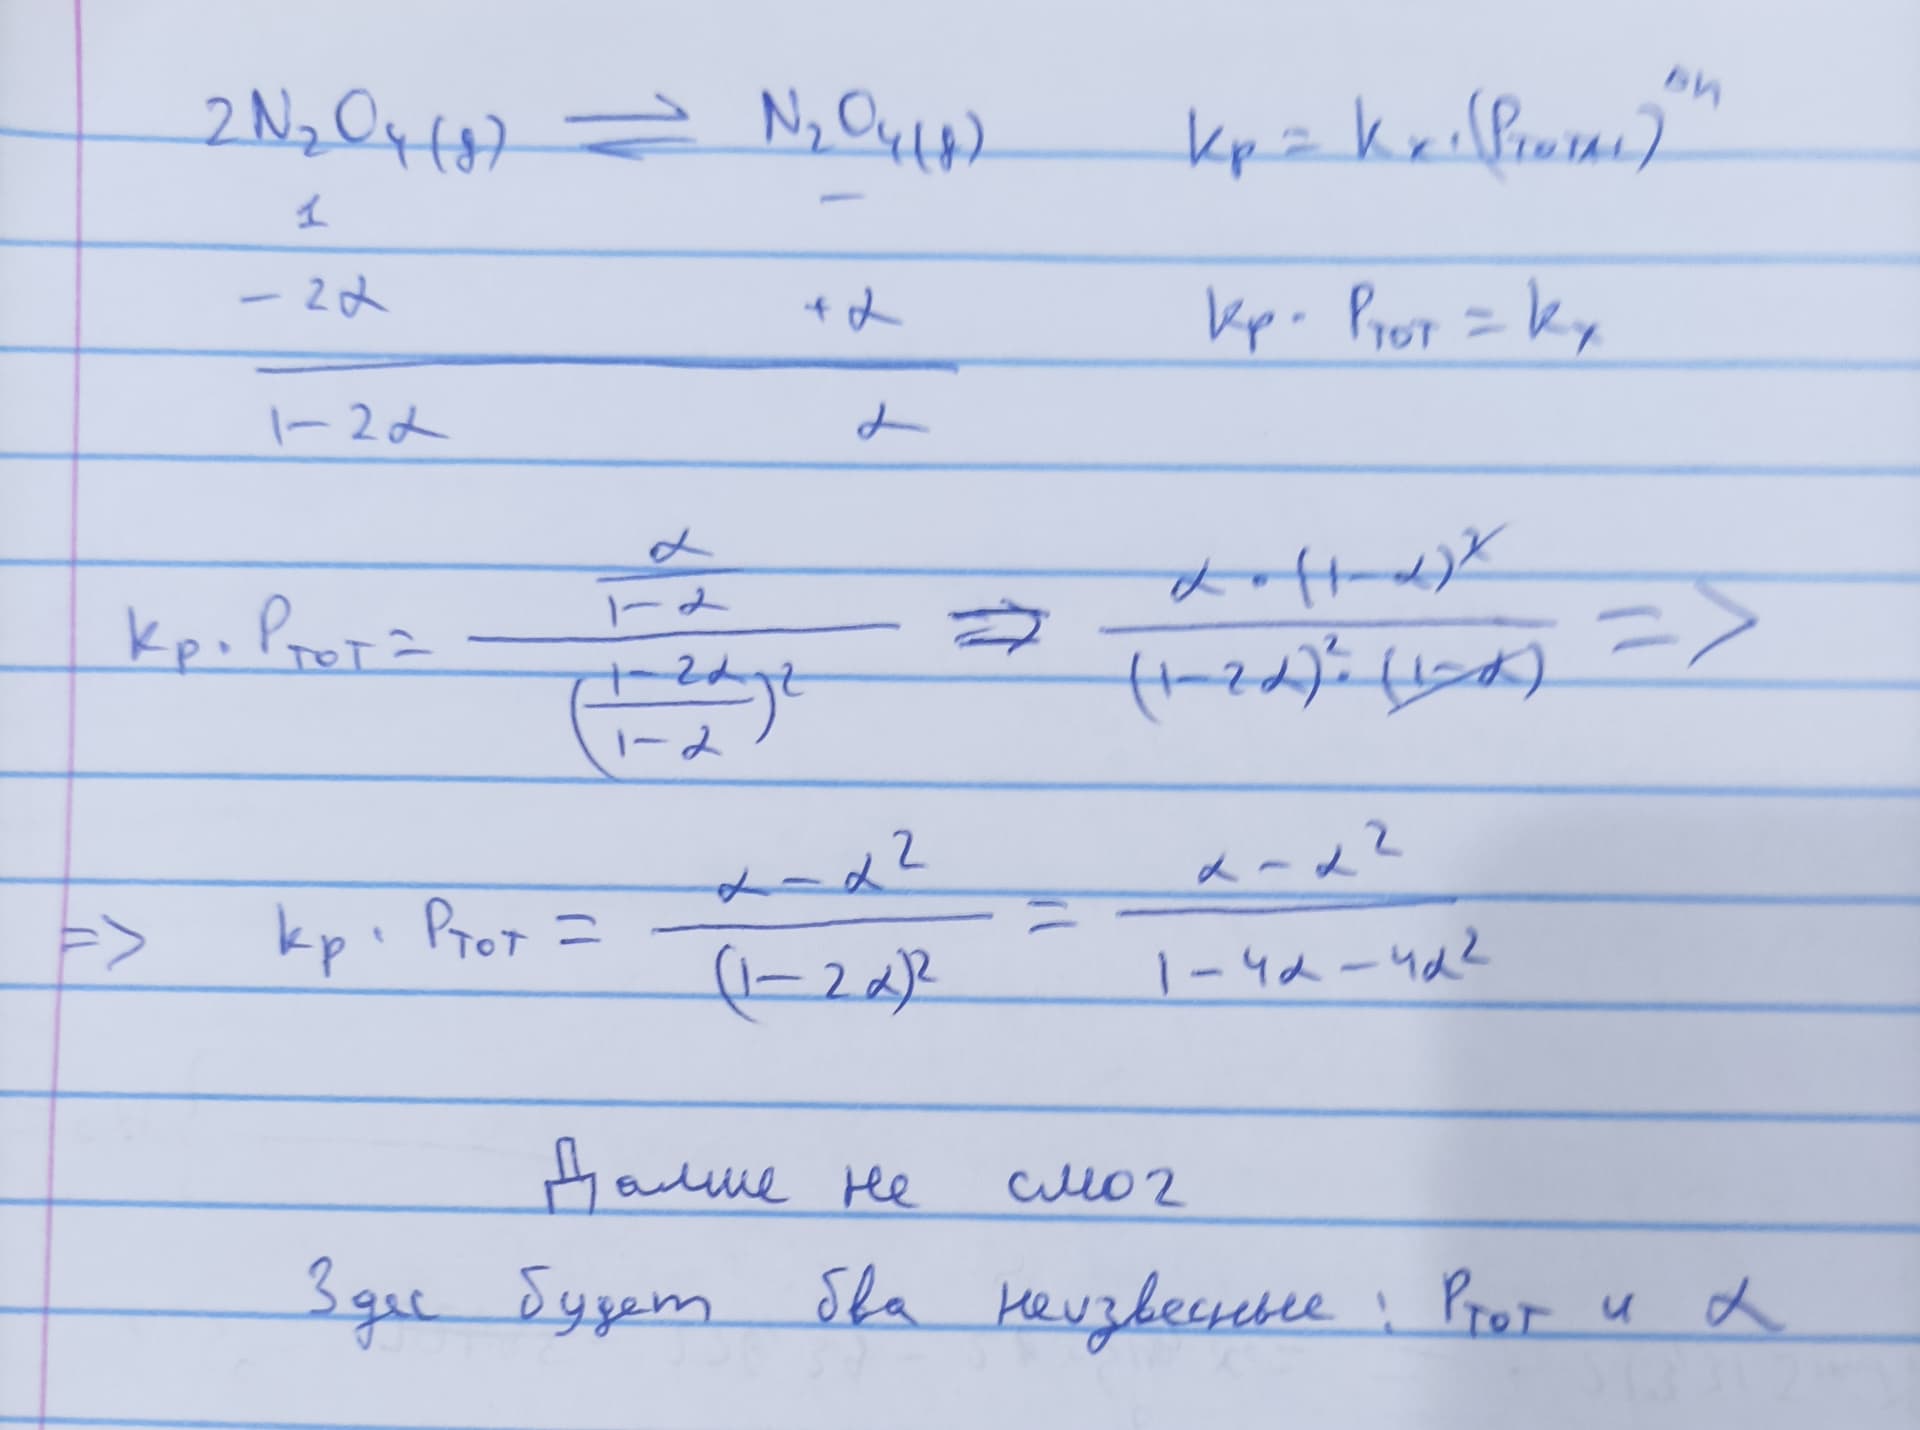 2N₂O₄(g) ⇌ N₂O₄(g) Kp = Kx · (Pтотал)^Δn
1 –
– 2α + α
Kp · Pтот = Kx
1 – 2α α
Kp · Pтот = (α / (1 – α)) / ((1 – 2α) / (1 – α))² ⇒ α · (1 – α)² / ((1 – 2α)² · (1 – α)) =>
=> Kp · Pтот = (α – α²) / (1 – 2α)² = (α – α²) / (1 – 4α – 4α²)
Далше не смог
Здес будет два неизвесные : Pтот и α